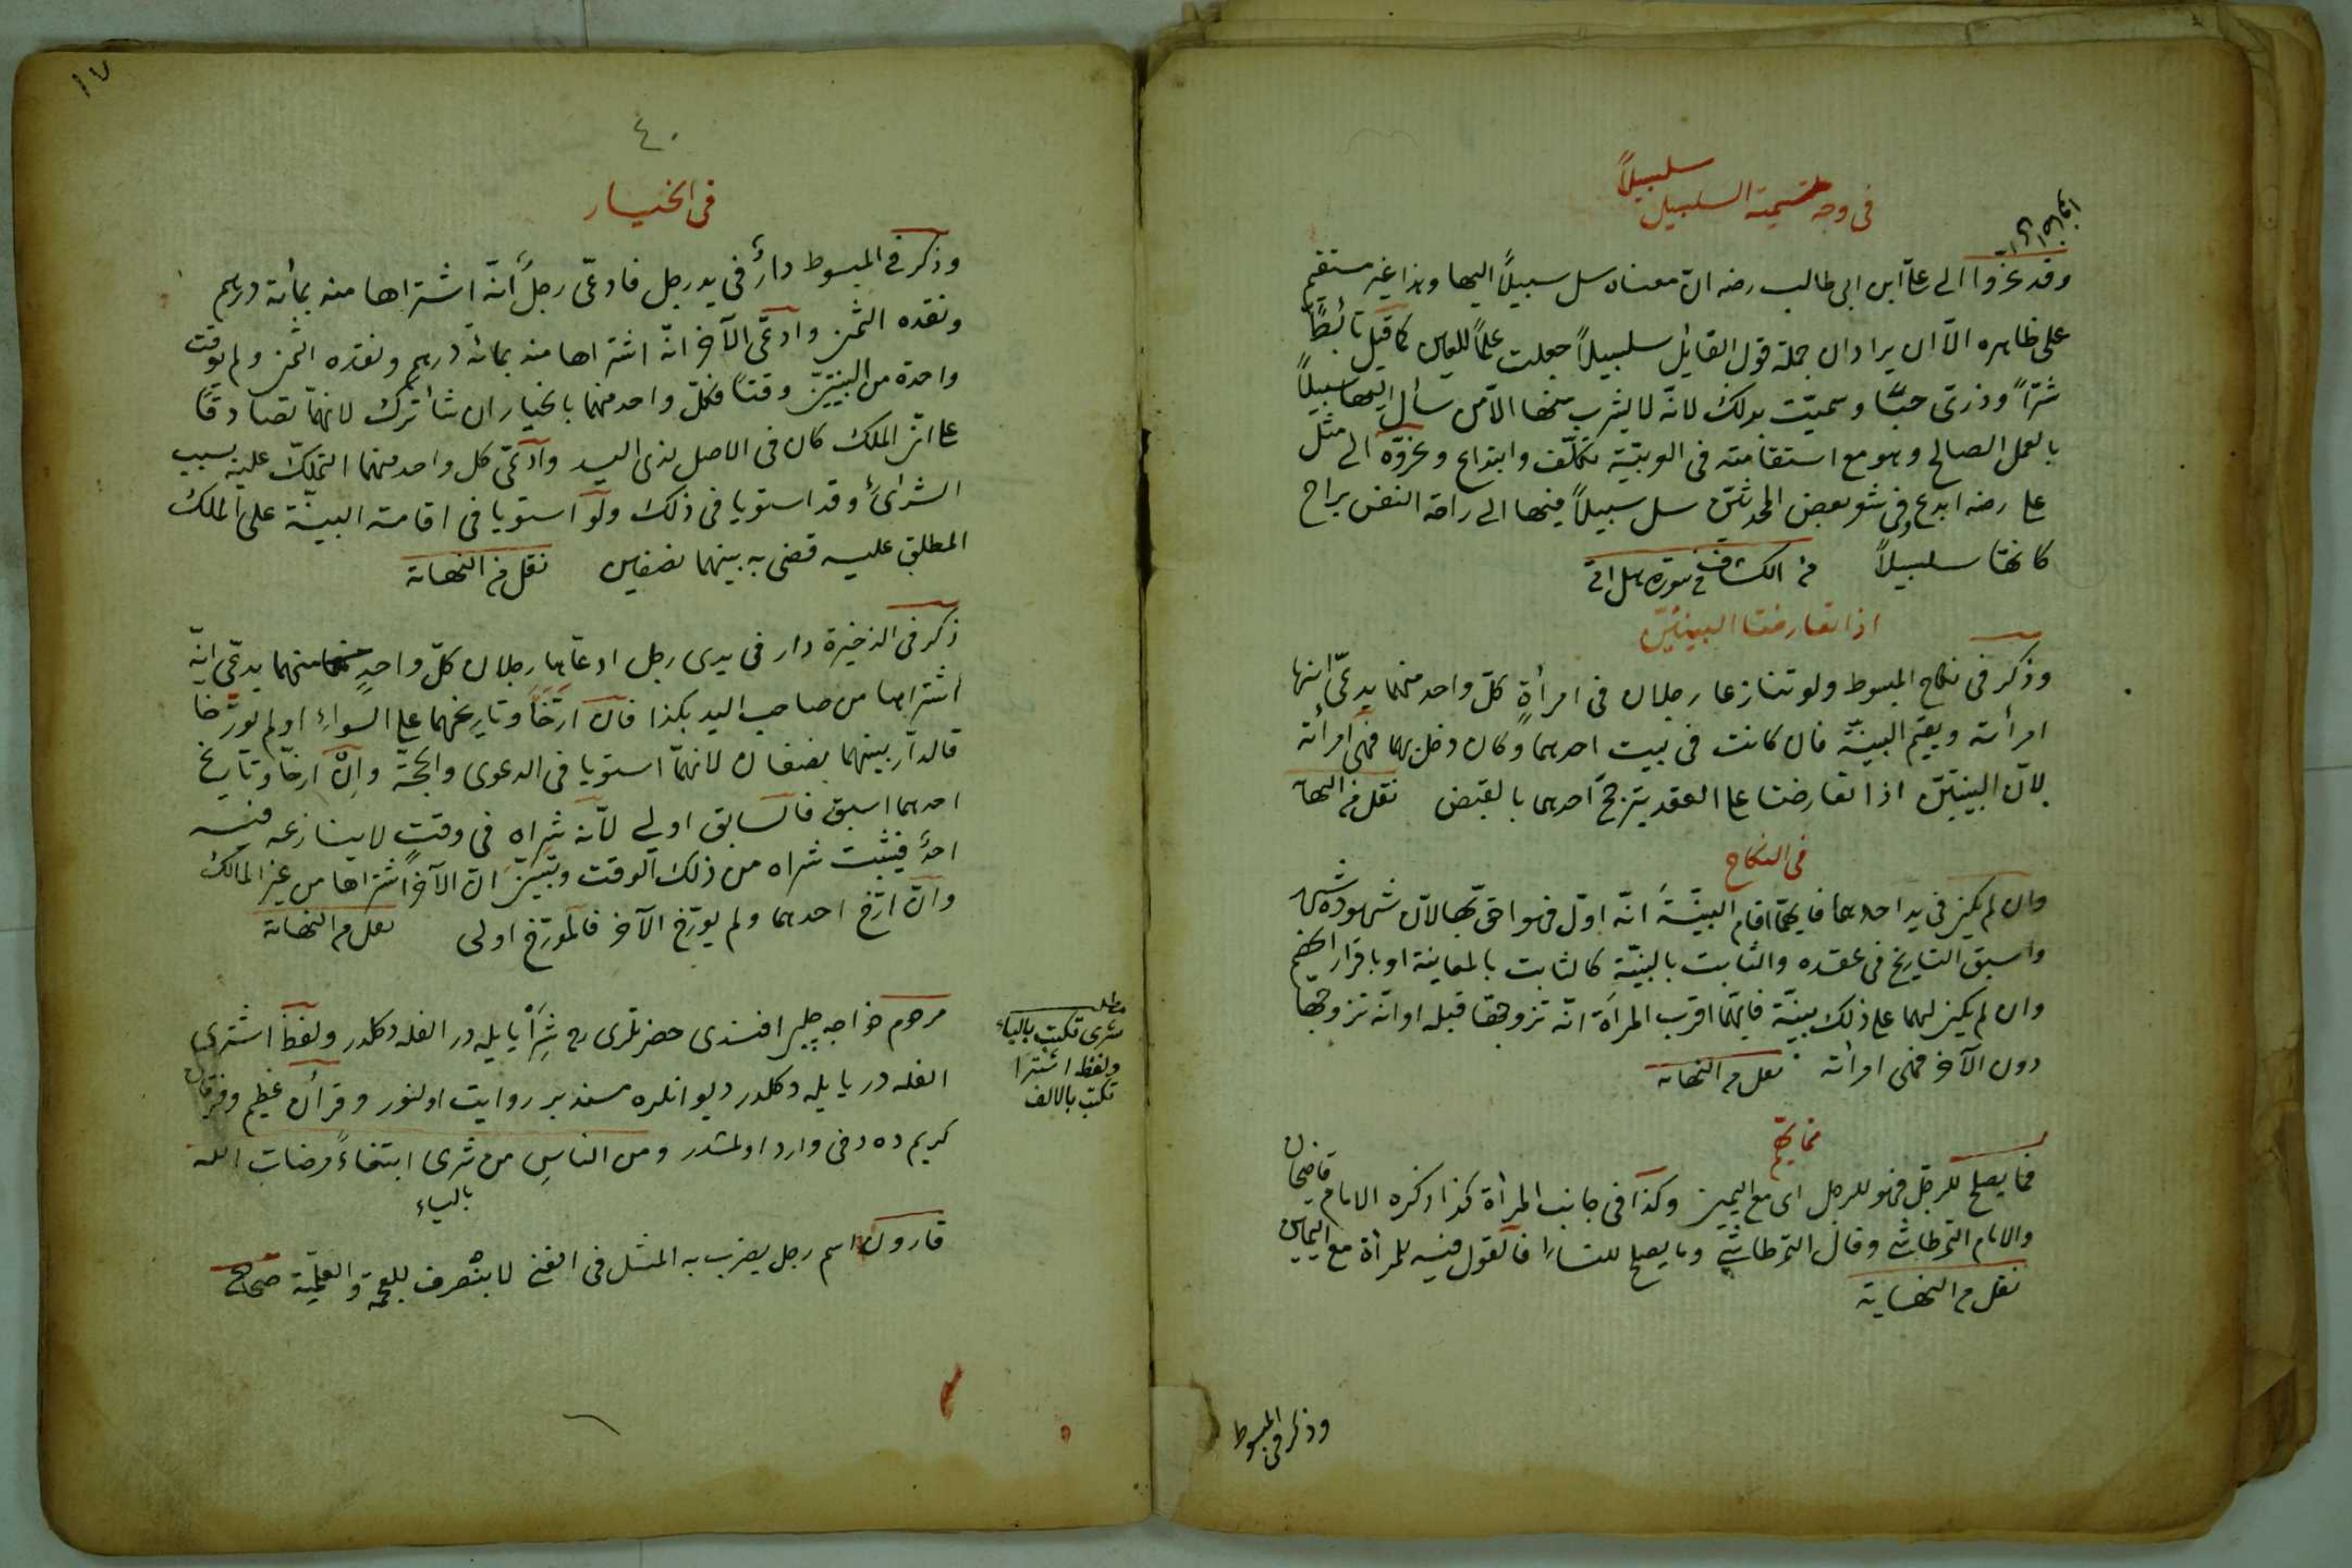 سلسبيلاً
فى وجه تسمية السلسبيل
وقد عزوا الى على ابن ابى طالب رضه ان معناه سل سبيلاً اليها وهذا غير مستقيم
على ظاهره الا ان يراد ان جملة قول القايل سلسبيلاً جعلت علماً للعين كما قيل تأبط
شرّاً وذرى حبّا وسميّت بذلك لانه لا يشرب منها الا من سأل اليها سبيلاً
بالعمل الصالح وهو مع استقامته فى العربيّة تكلّف وابتداع وعزوّه الى مثل
على رضه ابدع وفى شعر بعض المحدثين سل سبيلاً فيها الى راحة النفس براح
كانها سلسبيلاً من الكشاف فى سورة هل اتى
اذا تعارضتا البينتين
وذكر فى نكاح المبسوط ولو تنازعا رجلان فى امرأةٍ كل واحد منهما يدعى انها
امرأته ويقيم البينة فان كانت فى بيت احدهما وكان دخل بها فهى امرأته
لان البينتين اذا تعارضتا على العقد يترجح احدهما بالقبض نقل من النهاية
فى النكاح
وان لم يكن فى يد احدهما فايهما اقام البينة انه اول فهو احق بها لان شهوده شهد
واسبق التاريخ فى عقده والثابت بالبينة كالثابت بالمعاينة او باقرار الخصم
وان لم يكن لهما على ذلك بينة فايهما اقرت المرأة انه تزوجها قبله او انه تزوجها
دون الآخر فهى امرأته نقل من النهاية
فما يصلح للرجل فهو للرجل اى مع اليمين وكذا فى جانب المرأة كذا ذكره الامام قاضيخان
والامام التمرتاشى وقال التمرتاشى وما يصلح للنساء فالقول فيه للمرأة مع اليمين
نقل من النهاية
وذكر فى المبسوط
١٧
٤٠
فى الخيار
وذكر فى المبسوط دارٌ فى يد رجل فادعى رجلٌ انه اشتراها منه بمائة درهم
ونقده الثمن وادعى الآخر انه اشتراها منه بمائة درهم ونقده الثمن ولم يوقت
واحدة من البينتين وقتاً فكل واحد منهما بالخيار ان شاء ترك لانهما تصادقا
على ان الملك كان فى الاصل لذى اليد وادعى كل واحد منهما التملك عليه بسبب
الشرائ وقد استويا فى ذلك ولو استويا فى اقامة البينة على الملك
المطلق عليه قضى به بينهما نصفين نقل من النهاية
ذكر فى الذخيرة دار فى يدى رجل ادعاها رجلان كل واحدٍ منهما يدعى انه
اشتراها من صاحب اليد بكذا فان ارّخا وتاريخهما على السواء او لم يورّخا
فالدار بينهما نصفان لانهما استويا فى الدعوى والحجة وان ارخا وتاريخ
احدهما اسبق فالسابق اولى لانه شراه فى وقتٍ لا ينازعه فيه
احدٌ فيثبت شراه من ذلك الوقت وتبيّن ان الآخر اشتراها من غير المالك
وان ارّخ احدهما ولم يورّخ الآخر فالمورّخ اولى نقل من النهاية
مرحوم خواجه چلبى افندى حضرتلرى رح شراْ يايله در الفله دكلدر ولفظ اشترى
الفله در يايله دكلدر ديو انلره مسند بر روايت اولنور وقرآن عظيم وفرقان
كريم ده دخى وارد اولمشدر ومن الناس من شرى ابتغاءً مرضات الله
بالياء
مطلب
شرى تكتب بالياء
ولفظ اشترا
تكتب بالالف
قارون اسم رجل يضرب به المثل فى الغنى لا ينصرف للعجمة والعلمية صحاح